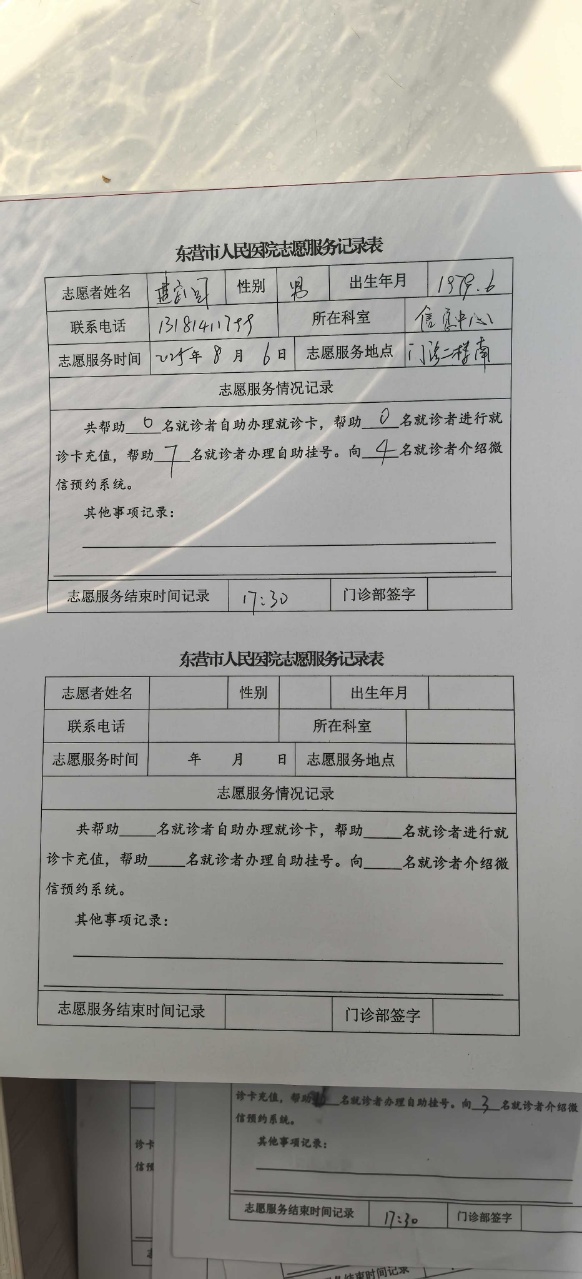 东营市人民医院志愿服务记录表
志愿者姓名 性别 男 出生年月 1979.6
联系电话 13181411799 所在科室 信息中心
志愿服务时间 2025年 8 月 6 日 志愿服务地点 门诊二楼南
志愿服务情况记录
共帮助 0 名就诊者自助办理就诊卡，帮助 0 名就诊者进行就
诊卡充值，帮助 7 名就诊者办理自助挂号。向 4 名就诊者介绍微
信预约系统。
其他事项记录：
志愿服务结束时间记录 17:30 门诊部签字
东营市人民医院志愿服务记录表
志愿者姓名 性别 出生年月
联系电话 所在科室
志愿服务时间 年 月 日 志愿服务地点
志愿服务情况记录
共帮助____名就诊者自助办理就诊卡，帮助____名就诊者进行就
诊卡充值，帮助____名就诊者办理自助挂号。向____名就诊者介绍微
信预约系统。
其他事项记录：
志愿服务结束时间记录 门诊部签字
诊卡充值，帮助 名就诊者办理自助挂号。向 3 名就诊者介绍微
诊卡 信预约系统。
信预 其他事项记录：
志愿服务结束时间记录 17:30 门诊部签字
志愿服务结束时间记录